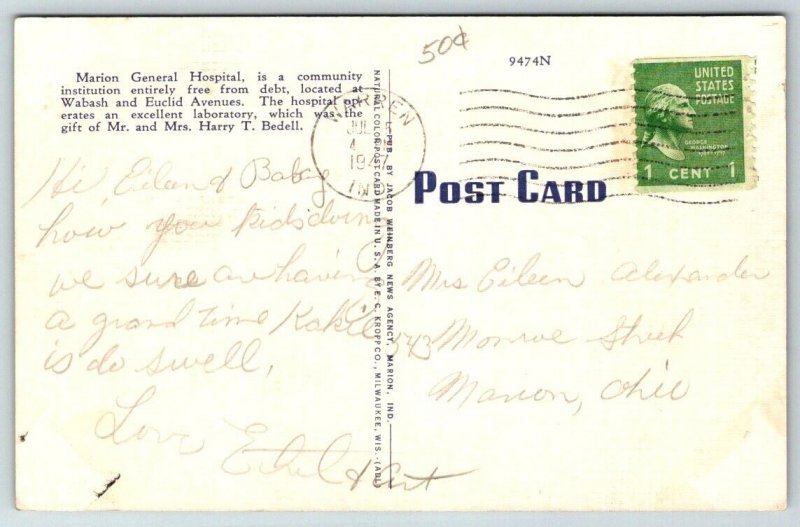 Marion General Hospital, is a community
institution entirely free from debt, located at
Wabash and Euclid Avenues. The hospital op-
erates an excellent laboratory, which was the
gift of Mr. and Mrs. Harry T. Bedell.
Hi, Eileen & Baby
how you kids doing
we sure are having
a grand time
is do swell,
Love
Ethel & Art
NATURAL COLOR POST CARD MADE IN U. S. A. BY E. C. KROPP CO., MILWAUKEE, WIS. (ABL)
PUB. BY JACOB WEINBERG NEWS AGENCY, MARION, IND.
50¢
9474N
WARREN
JUL
4
194
IND
UNITED
STATES
POSTAGE
GEORGE
WASHINGTON
1 CENT 1
POST CARD
Mrs Eileen Alexander
543 Monroe Street
Marion, Ohio